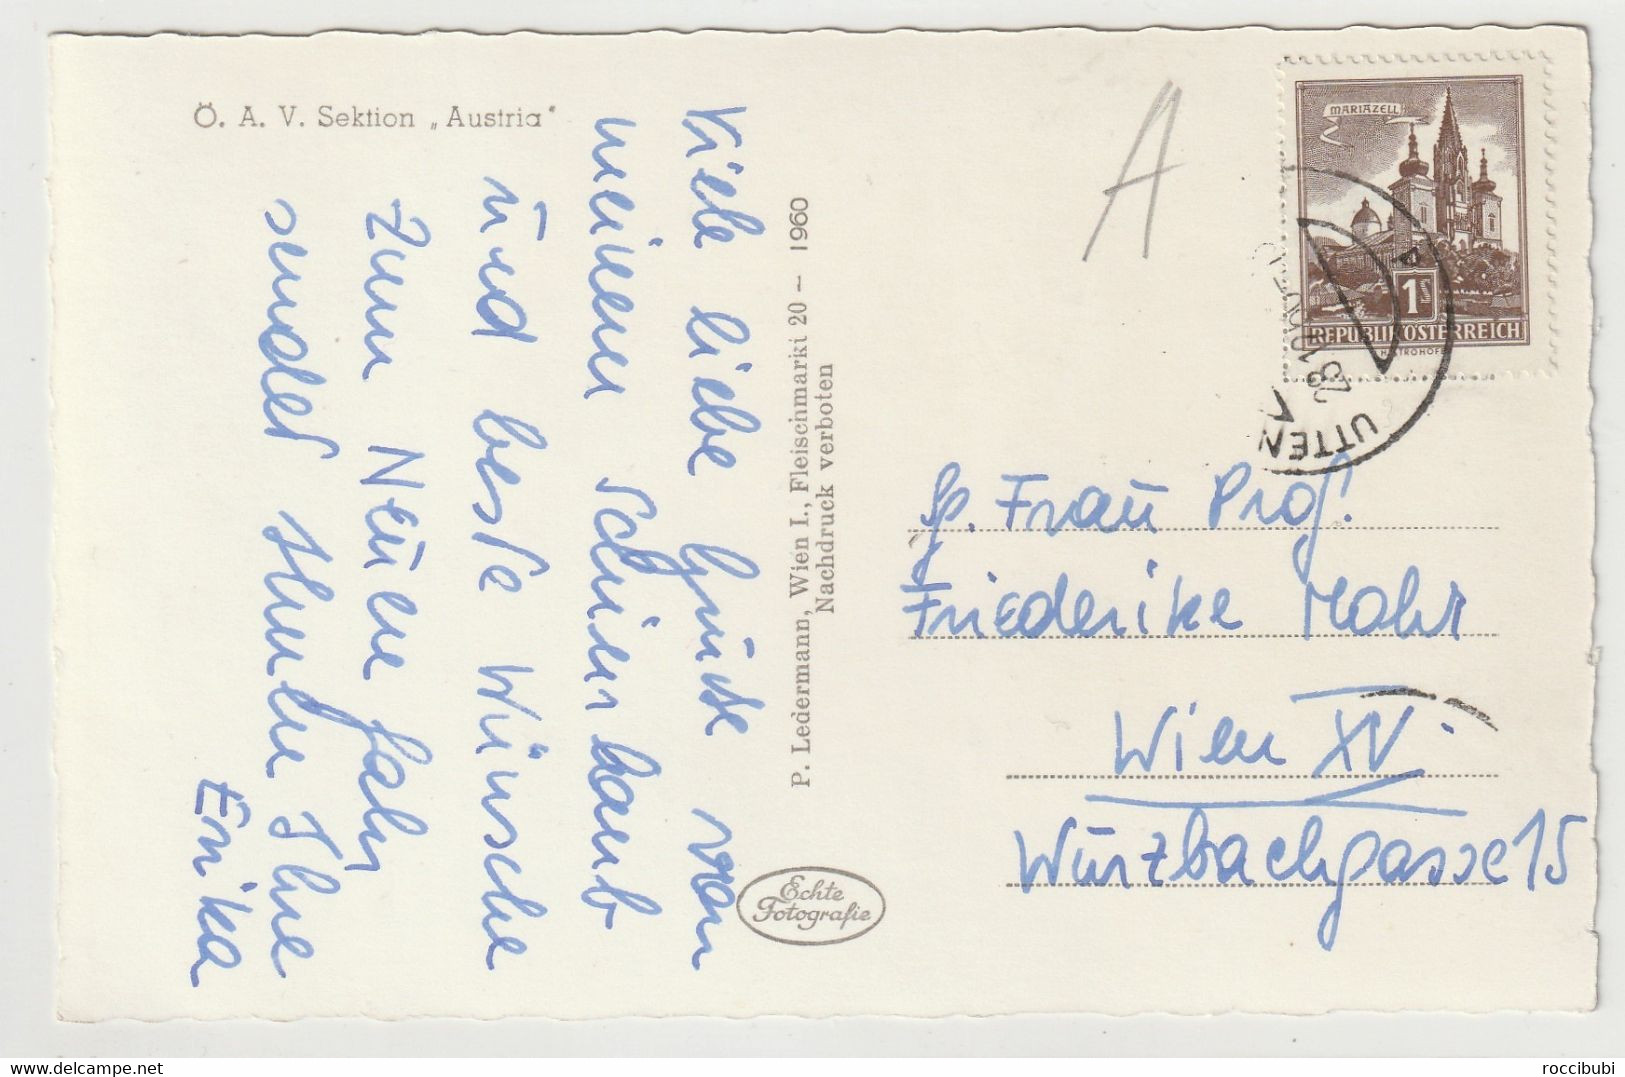 Ö. A. V. Sektion „Austria"
Viele liebe Grüße von
meinem Schiurlaub
und beste Wünsche
zum Neuen Jahr
sendet Ihnen Ihre
Erika
P. Ledermann, Wien I., Fleischmarkt 20 – 1960
Nachdruck verboten
Echte
Fotografie
A
MARIAZELL
1 S
REPUBLIK ÖSTERREICH
UTTEN
Frau Prof.
Friederike Mohr
Wien XV.
Wurzbachgasse 15
roccibubi